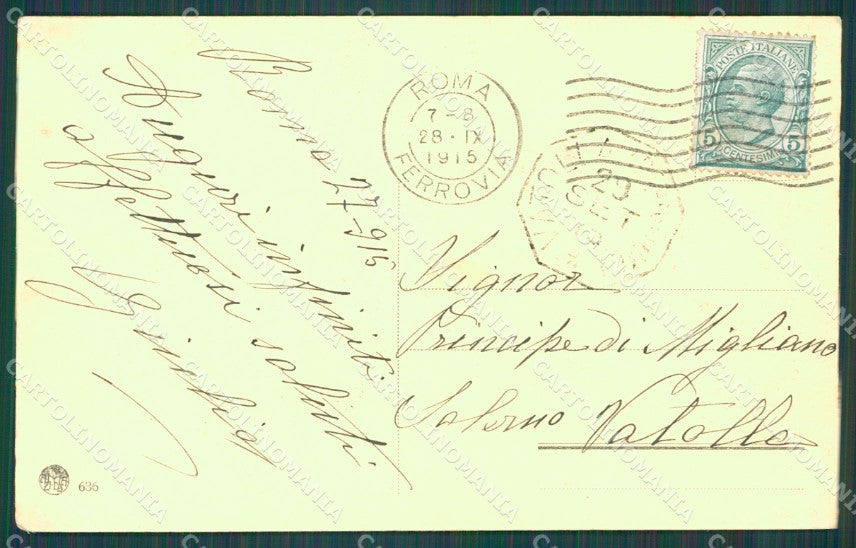 Roma 27-9-15
Auguri infiniti
affettuosi saluti
ROMA
7-8
28·IX
1915
FERROVIA
POSTE ITALIANE
5 5
CENTESIMI
SET
Signor
Principe di Migliano
Salerno Vatolla
636
CARTOLINOMANIA